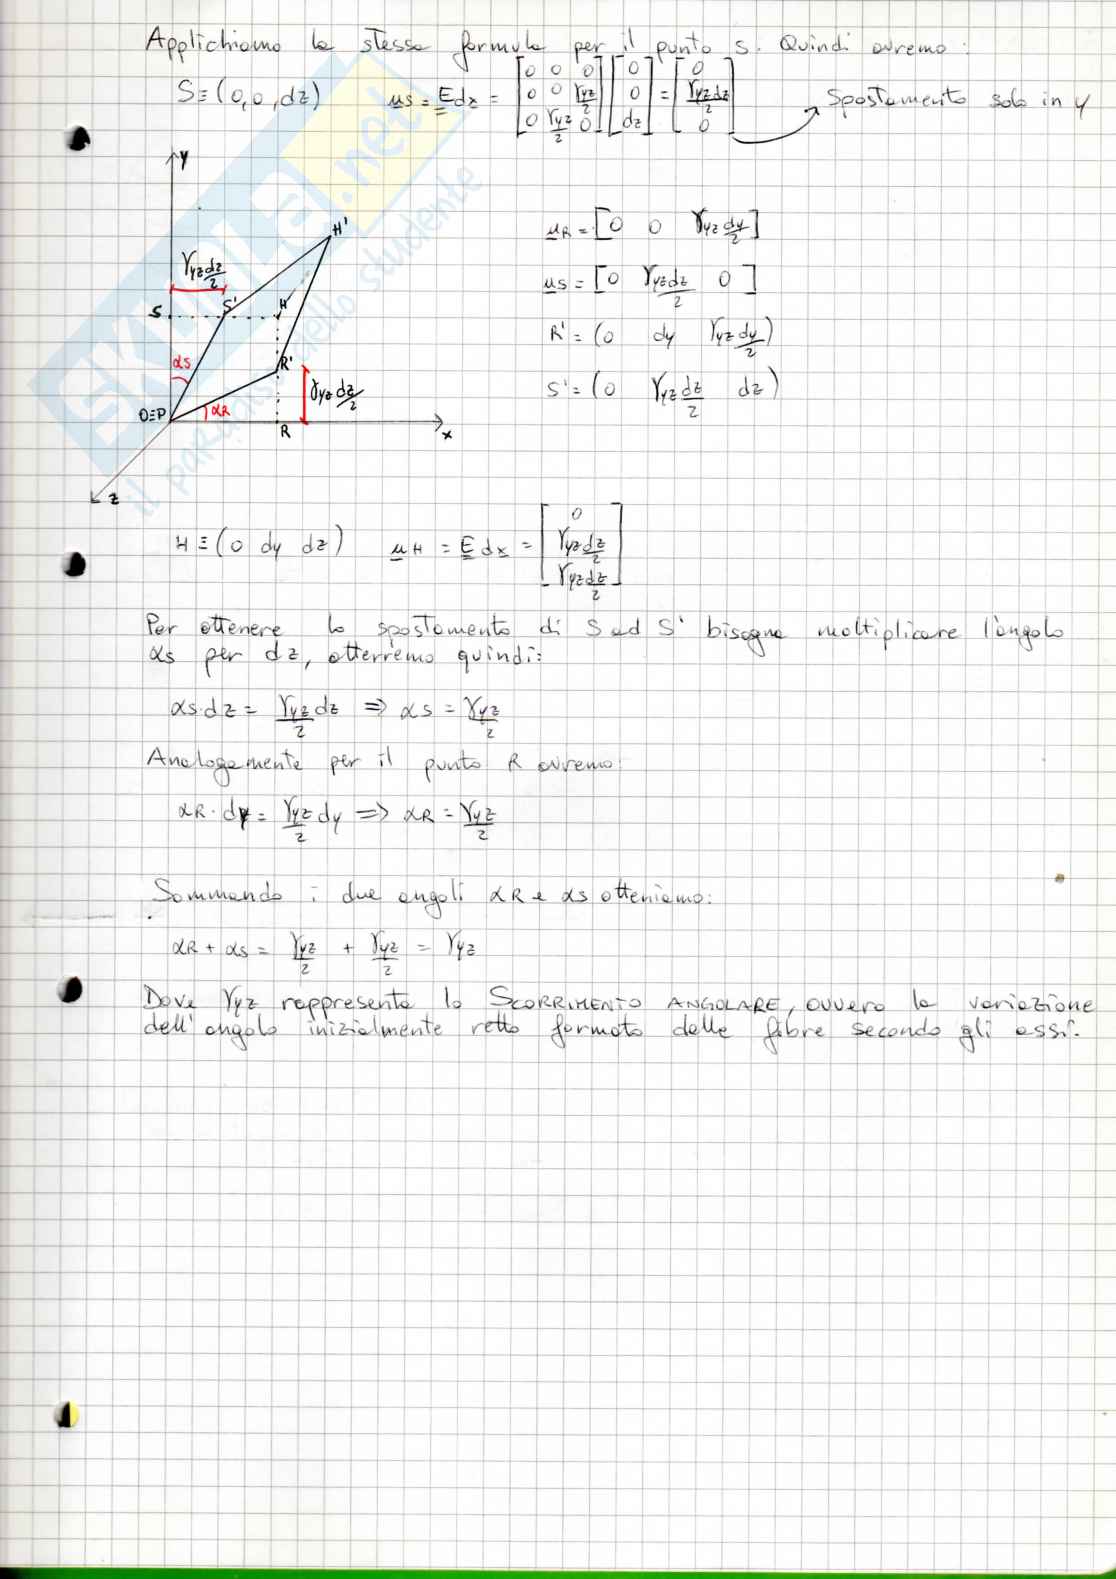 Applichiamo la stessa formula per il punto S. Quindi avremo:
S≡(0,0,dz) u̲s = E̲̲ dx̲ = [0 0 0; 0 0 γyz/2; 0 γyz/2 0] [0; 0; dz] = [0; γyz dz/2; 0] Spostamento solo in y
y
H'
γyz dz/2
S S' H
αs
R'
γyz dz/2
O≡P αR
R x
z
u̲R = [0 0 γyz dy/2]
u̲s = [0 γyz dz/2 0]
R' = (0 dy γyz dy/2)
S' = (0 γyz dz/2 dz)
H ≡ (0 dy dz) u̲H = E̲̲ dx̲ = [0; γyz dz/2; γyz dz/2]
Per ottenere lo spostamento di S ad S' bisogna moltiplicare l'angolo
αs per dz, otterremo quindi:
αs·dz = γyz/2 dz ⇒ αs = γyz/2
Analogamente per il punto R avremo:
αR·dy = γyz/2 dy ⇒ αR = γyz/2
Sommando i due angoli αR e αs otteniamo:
αR + αs = γyz/2 + γyz/2 = γyz
Dove γyz rappresenta lo SCORRIMENTO ANGOLARE, ovvero la variazione
dell'angolo inizialmente retto formato dalle fibre secondo gli assi.
SKUOLA.net